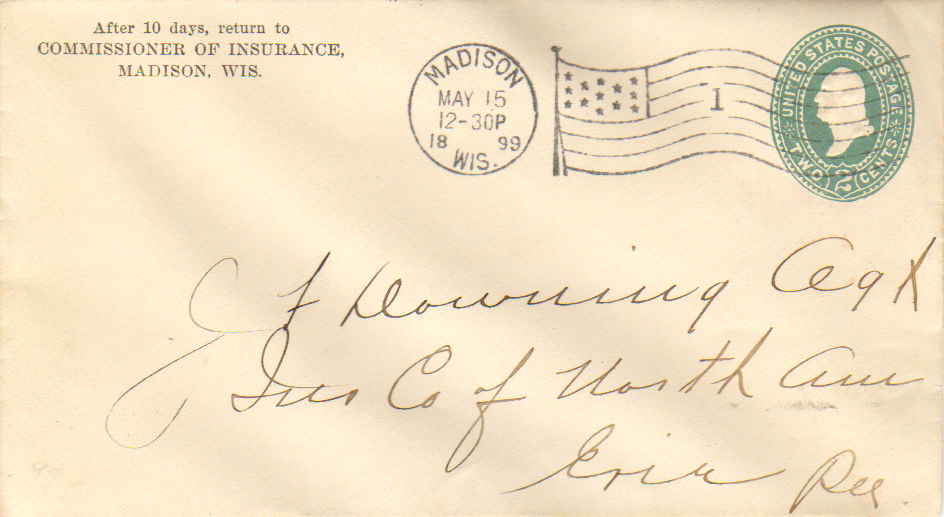 After 10 days, return to
COMMISSIONER OF INSURANCE,
MADISON, WIS.
MADISON
MAY 15
12-30P
18 99
WIS.
1
UNITED STATES POSTAGE
TWO 2 CENTS
J F Downing Agt
Ins Co of North Am
Erie Pa.